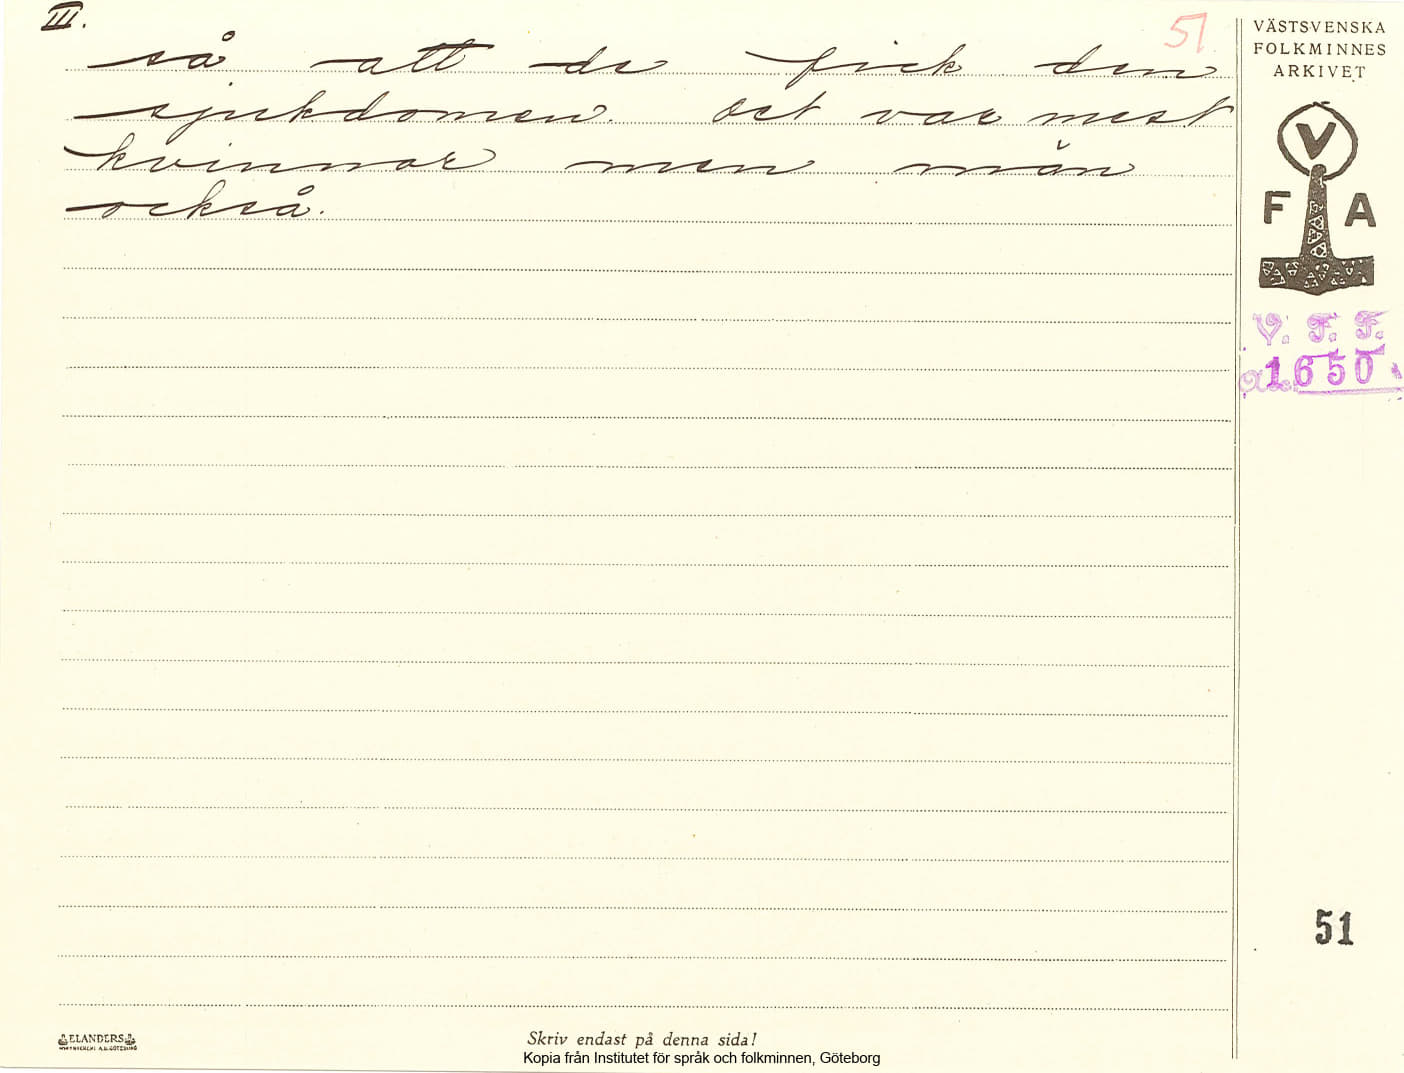 III.
51
så att de fick den
sjukdomen. Det var mest
kvinnor men män
också.
VÄSTSVENSKA
FOLKMINNES
ARKIVET
V
F A
V. F. F.
1650
51
ELANDERS
Skriv endast på denna sida!
Kopia från Institutet för språk och folkminnen, Göteborg